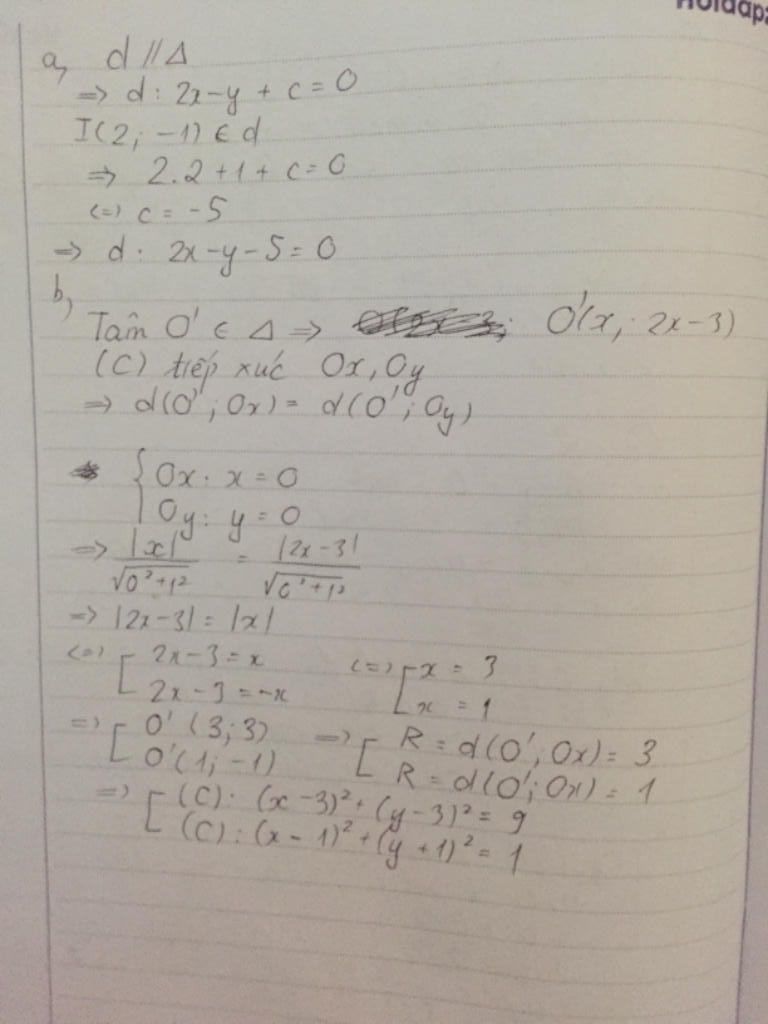 Hoidap
a, d // Δ
=> d : 2x - y + c = 0
I(2; -1) ∈ d
=> 2.2 + 1 + c = 0
(=) c = -5
=> d : 2x - y - 5 = 0
b,
Tâm O' ∈ Δ => O'(x; 2x-3)
(C) tiếp xúc Ox, Oy
=> d(O'; Ox) = d(O'; Oy)
{ Ox: x = 0
Oy: y = 0
=> |x|/√(0²+1²) = |2x-3|/√(0²+1²)
=> |2x-3| = |x|
(=) [ 2x-3 = x (=) [ x = 3
2x-3 = -x x = 1
=> [ O'(3; 3) => [ R = d(O', Ox) = 3
O'(1; -1) R = d(O'; Ox) = 1
=> [ (C): (x-3)² + (y-3)² = 9
(C): (x-1)² + (y+1)² = 1